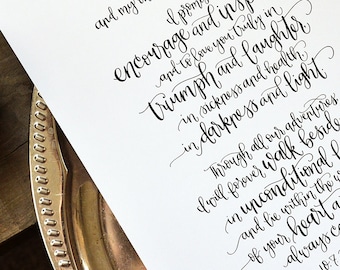 and my
I promise
encourage and insp
and to love you truly in
triumph and laughter
in sickness and health
in darkness and light
Through all our adventures
I will forever walk beside
in unconditional l
and be within the w
of your heart a
always c